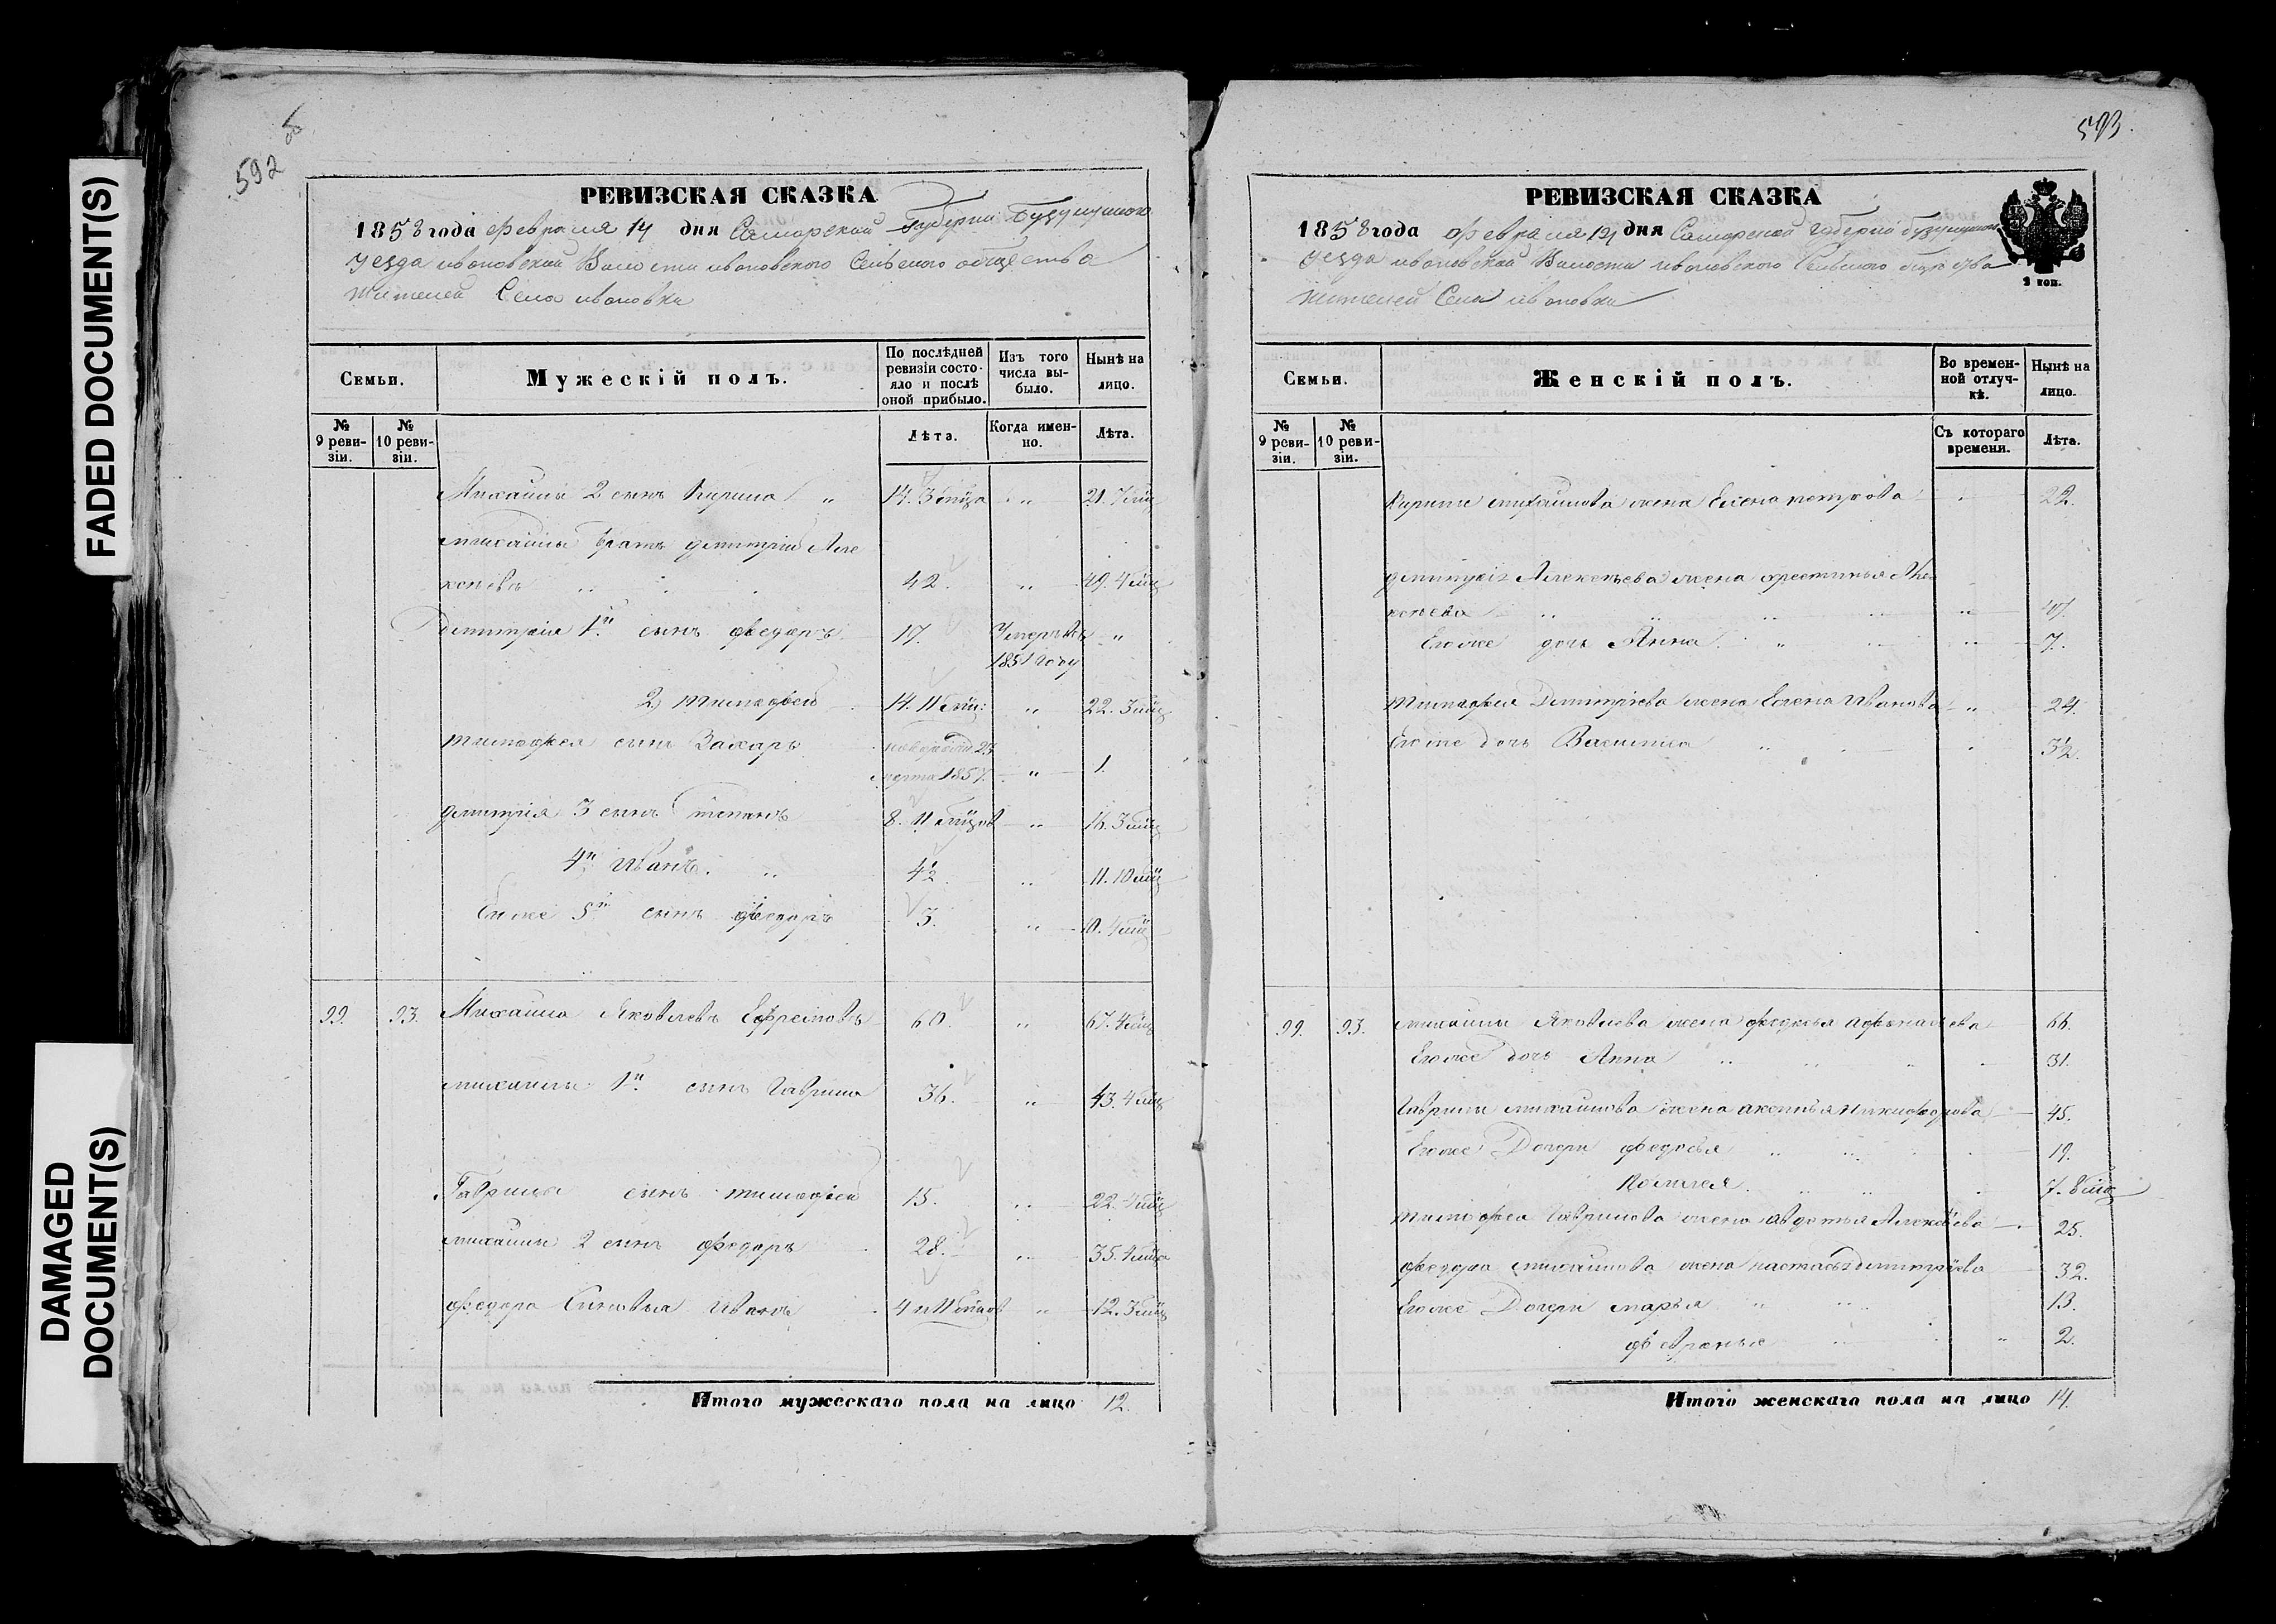 FADED DOCUMENT(S)
DAMAGED
DOCUMENT(S)
592 об
РЕВИЗСКАЯ СКАЗКА
1858 года февраля 14 дня Самарской Губернии Бузулукского
уезда ивановской Волости ивановского Сельского общества
жителей Села ивановки
Семьи.
Мужескій полъ.
По послѣдней ревизіи состояло и послѣ оной прибыло.
Изъ того числа выбыло.
Нынѣ на лицо.
№ 9 ревизіи.
№ 10 ревизіи.
Лѣта.
Когда именно.
Лѣта.
Михайлы 2 сынъ Кирила " 14. 3 мца " 21. 7 мц
михайлы братъ димитрий Але
ксеевъ 42. " 49. 4 мц
Димитрия 1й сынъ федоръ 17. Умеръ въ "
1851 году
2, тимофей 14. 11 мц: " 22. 3 мц
тимофея сынъ Захаръ
марта 1857. " 1.
димитрия 3 сынъ степанъ 8. 11 мцов " 16. 3 мц
4й Иванъ. " 4½ " 11. 10 мц
Его же 5й сынъ федоръ 3. " 10. 4 мц
99. 93. Михаила Яковлевъ Ефремовъ 60. " 67. 4 мц
михайлы 1й сынъ Гаврила 36. " 43. 4 мц
Гаврилы сынъ тимофей 15. " 22. 4 мц
михайлы 2 сынъ федоръ 28. " 35. 4 мца
федора Сыновья Иванъ 4 и 11 мцов " 12. 3 мц
Итого мужескаго пола на лицо 12.
593.
РЕВИЗСКАЯ СКАЗКА
2 коп.
1858 года февраля 14 дня Самарской губернии бузулукского
уезда ивановской Волости ивановского Сельского общества
жителей Села ивановки
Семьи.
Женскій полъ.
Во временной отлучкѣ.
Нынѣ на лицо.
№ 9 ревизіи.
№ 10 ревизіи.
Съ котораго времени.
Лѣта.
Кирилы михайлова жена Елена петрова " 22.
димитрия Алексеева жена Але
ксеева " 47.
Его же дочь Анна " " 7.
тимофея Димитриева жена Елена Иванова " 24.
Его же дочь Василиса " 3½.
99. 93. михайлы Яковлева жена федосья афонасьева 66.
Его же дочь Анна " 31.
Гаврилы михайлова жена аксинья никифорова 45.
Его же Дочери федосья " 19.
Пелагея. " 7. 8 мцов
тимофея Гаврилова жена авдотья Алексеева 25.
федора михайлова жена настасья димитриева 32.
Его же Дочери марья " 13.
февронья " 2.
Итого женскаго пола на лицо 14.